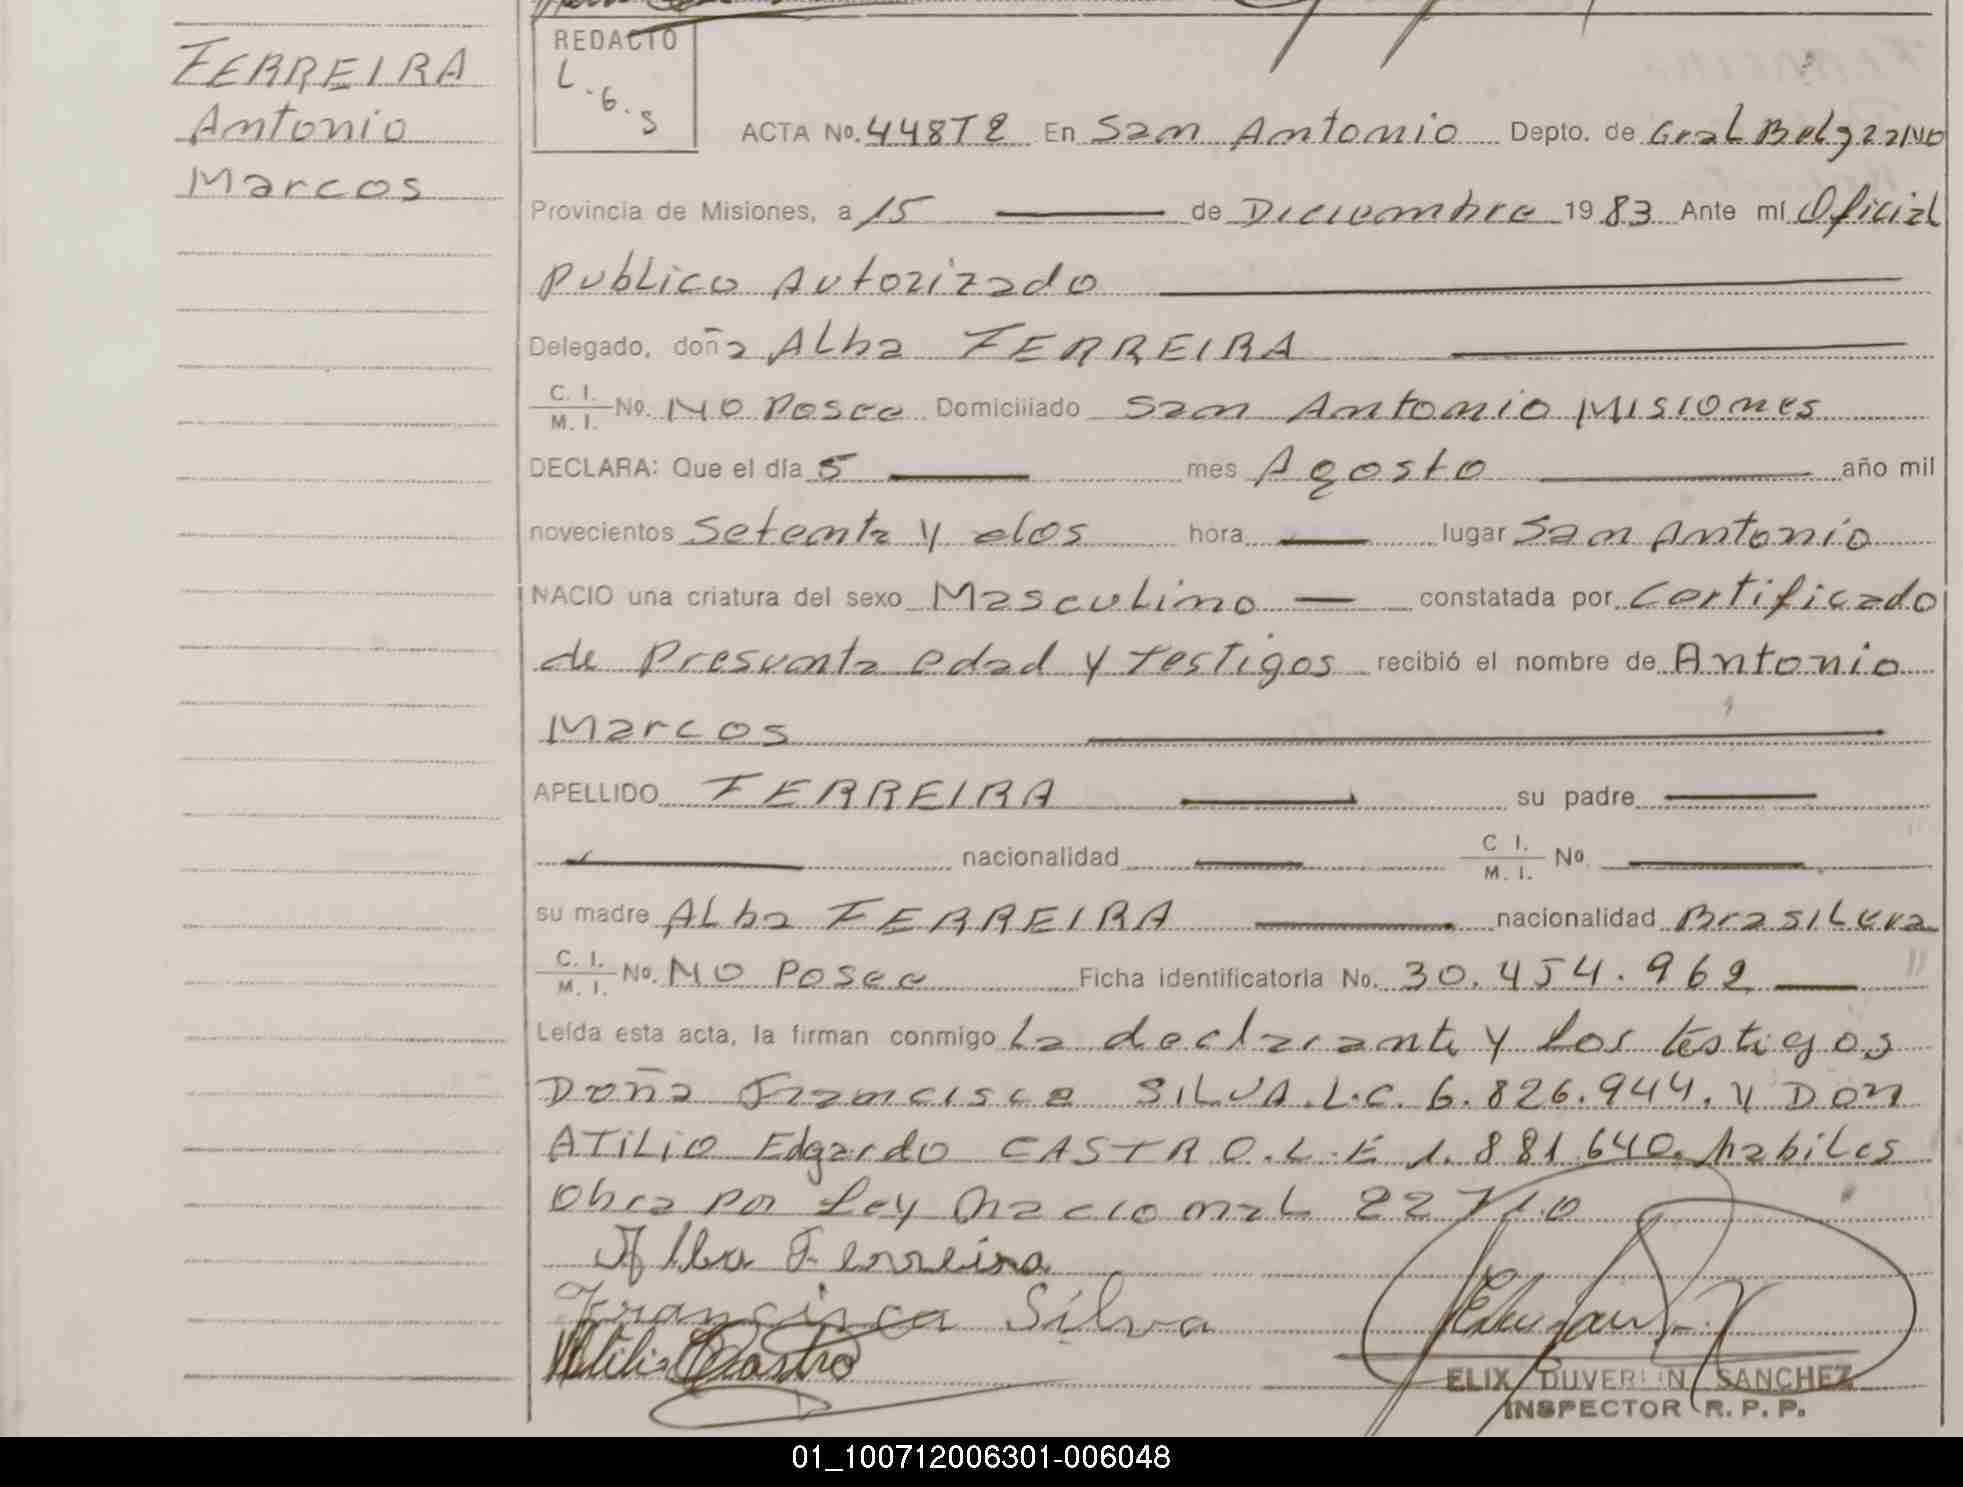 FERREIRA
Antonio
Marcos
REDACTO
L.G.S
ACTA No. 448T2 En San Antonio Depto. de Gral Belgrano
Provincia de Misiones, a 15 de Diciembre 1983 Ante mí Oficial
Publico Autorizado
Delegado, doña Alba FERREIRA
C. I. / M. I. No. NO Posee Domiciliado San Antonio Misiones
DECLARA: Que el día 5 mes Agosto año mil
novecientos Setenta y dos hora lugar San Antonio
NACIO una criatura del sexo Masculino constatada por Certificado
de Presunta edad y testigos recibió el nombre de Antonio
Marcos
APELLIDO FERREIRA su padre
nacionalidad C. I. / M. I. No.
su madre Alba FERREIRA nacionalidad Brasilera
C. I. / M. I. No. NO Posee Ficha identificatoria No. 30.454.962
Leída esta acta, la firman conmigo la declarante y los testigos
Doña Francisca SILVA. L.C. 6.826.944. y DON
ATILIO Edgardo CASTRO. L.E 1.881.640. habiles
Obra por Ley Nacional 22710
Alba Ferreira
Francisca Silva
Atilio Castro
ELIX DUVERLIN SANCHEZ
INSPECTOR R. P. P.
01_100712006301-006048